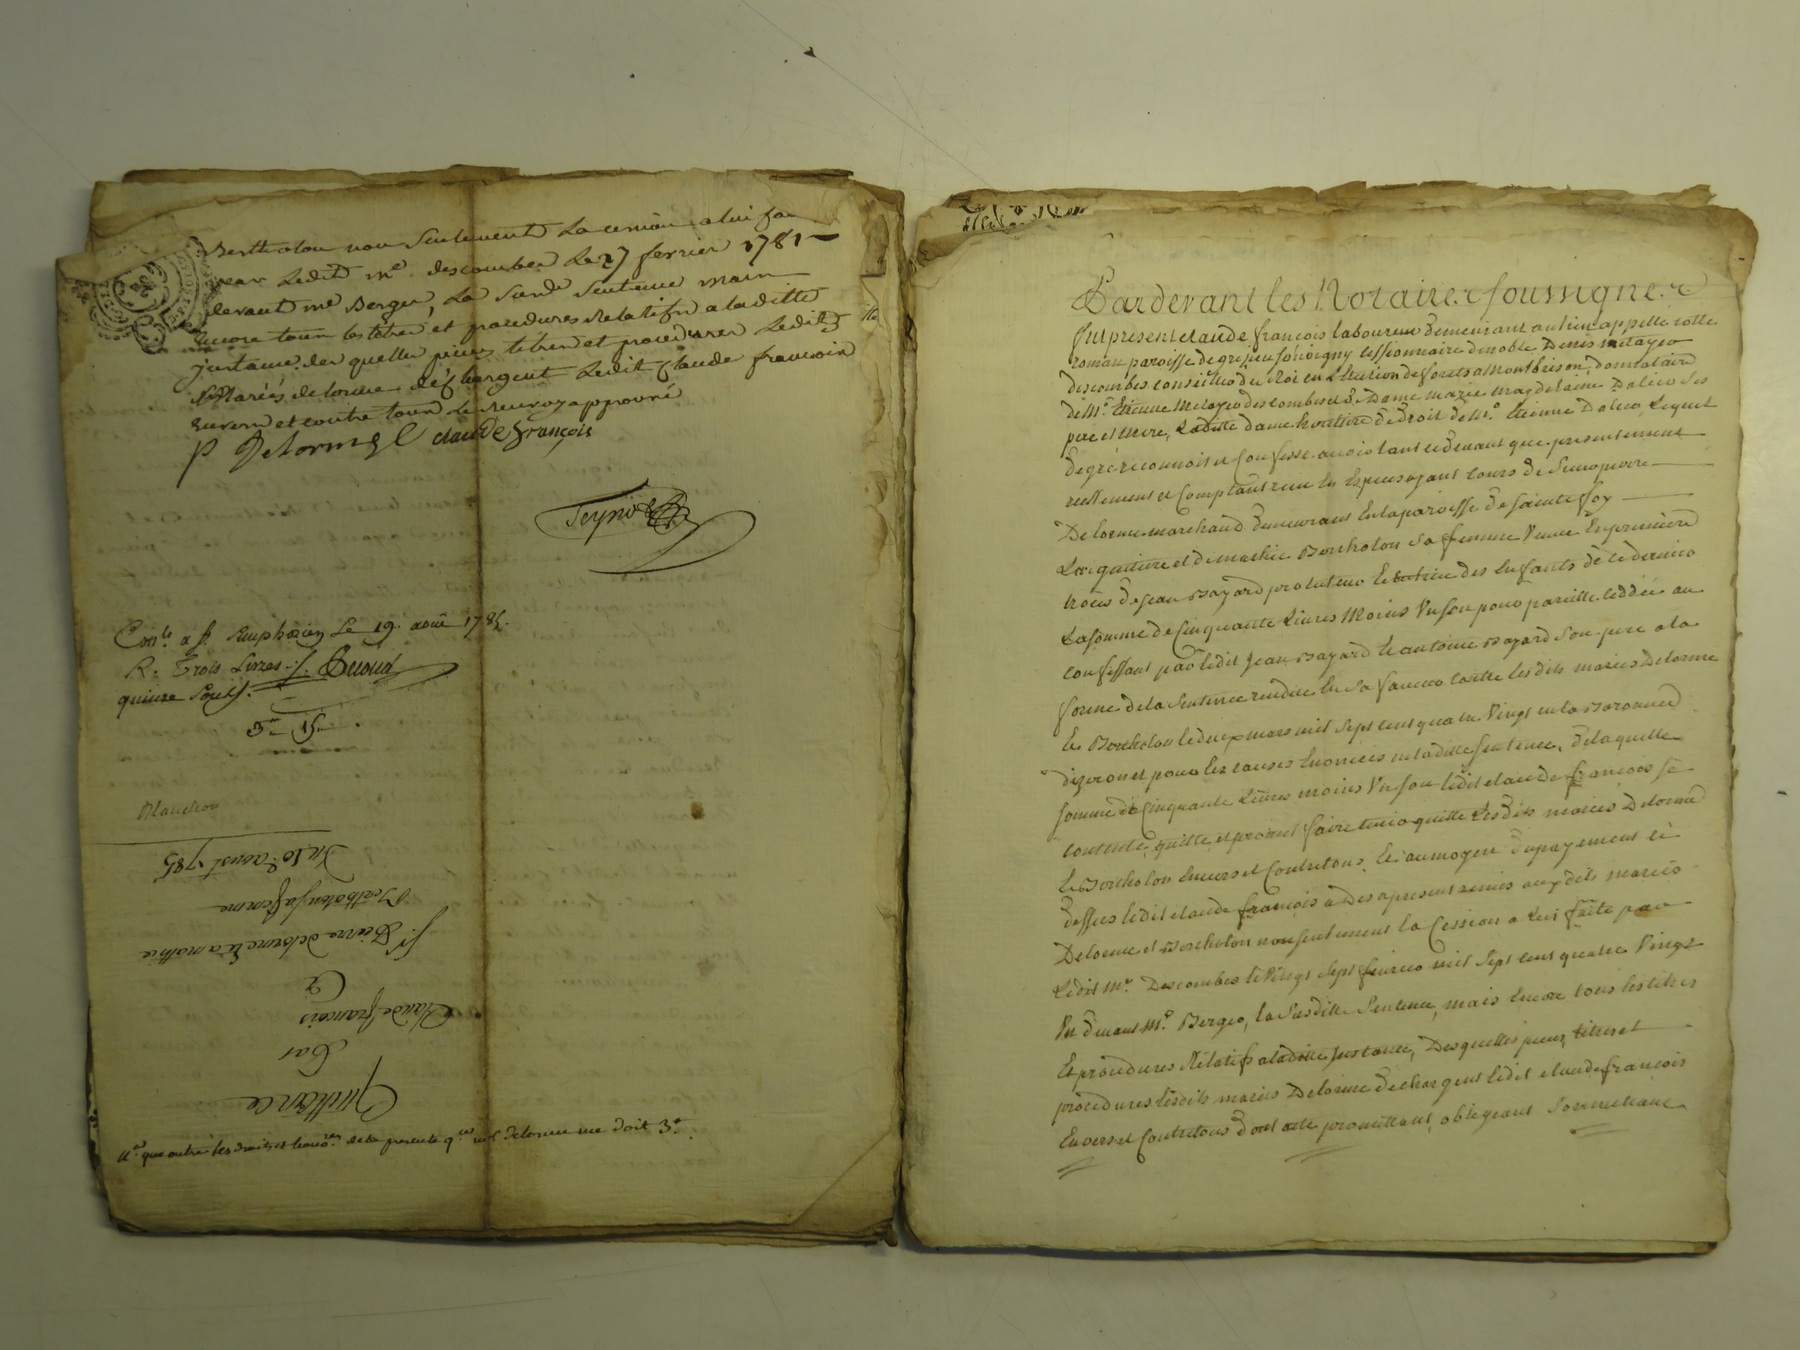 Bertholon non Seulement La cession a lui fa
par Ledit me. descombes Le 27 fevrier 1781
devant me Berger, La Susde Sentence mais
Encore tous les titres et procedures Relatifs a laditte
justance. des quelles pieces titres et procedures Lesdits
Mariés delorme déchargent Ledit Claude francois
envers et contre tous Le Renvoy approuvé
P Delorme claude françois
Con.le a St Simphorien Le 19. août 1785.
R. Trois Livres
quinze Sous
3tt 15s
Blanchon
Quittance
Par
Claude francois
a
Sr. Pierre delorme et a mathie
Bertholon sa femme
Du 10 aoust 1785
Na. que outre les droits et honores. de la presente qce. ml. Delorme me doit 3tt
Pardevant les Notaires soussignés
fut present claude françois laboureur demeurant au lieu appellé cotte
romain paroisse de grezieu souvigny cessionnaire de noble Denis metayer
descombes conseiller du Roi en L'Election de forets a Montbrison, donnataire
de Mr. Etienne Metayer descombes et de Dame marie magdelaine Dalier ses
pere et mere, Laditte dame heritiere de droit de Mr. Etienne Dalier, Lequel
de gré reconnoit et Confesse avoir tant cidevant que presentement
reellement et Comptant reçu en Especes ayant cours de
Delorme marchand demeurant En la paroisse de Sainte foy
L'argentiere et de mathie Bertholon Sa femme Veuve En premiere
nôces de jean Bayard protuteur Et tutrice des Enfants de ce dernier
La Somme de Cinquante Livres Moins Un Sou pour pareille ceddée au
confessant par ledit jean Bayard Et antoine Bayard Son pere a la
forme de la Sentence rendue En Sa faveur contre lesdits mariés Delorme
Et Bertholon le deux mars mil Sept cent quatre Vingt en la Baronnie
d'izeron et pour les causes Enoncées en laditte Sentence, de laquelle
Somme de Cinquante Livres moins Un Sou ledit claude françois se
contente, quitte et promet faire tenir quitte Lesdits mariés Delorme
Et Bertholon Envers et Contre tous, Et au moyen du payement ci
dessus ledit claude françois a des apresent remis auxdits mariés
Delorme et Bertholon non seulement la Cession a Lui faite par
Ledit Mr. Descombes le Vingt Sept fevrier mil Sept cent quatre Vingt
Un devant Me. Berger, la Susditte Sentence, mais Encore tous les titres
Et procedures Relatifs a laditte Justance, Desquelles pieces, titres et
procedures lesdits mariés Delorme dechargent ledit claude françois
Envers et Contre tous dont acte promettant, obligeant Soumettant